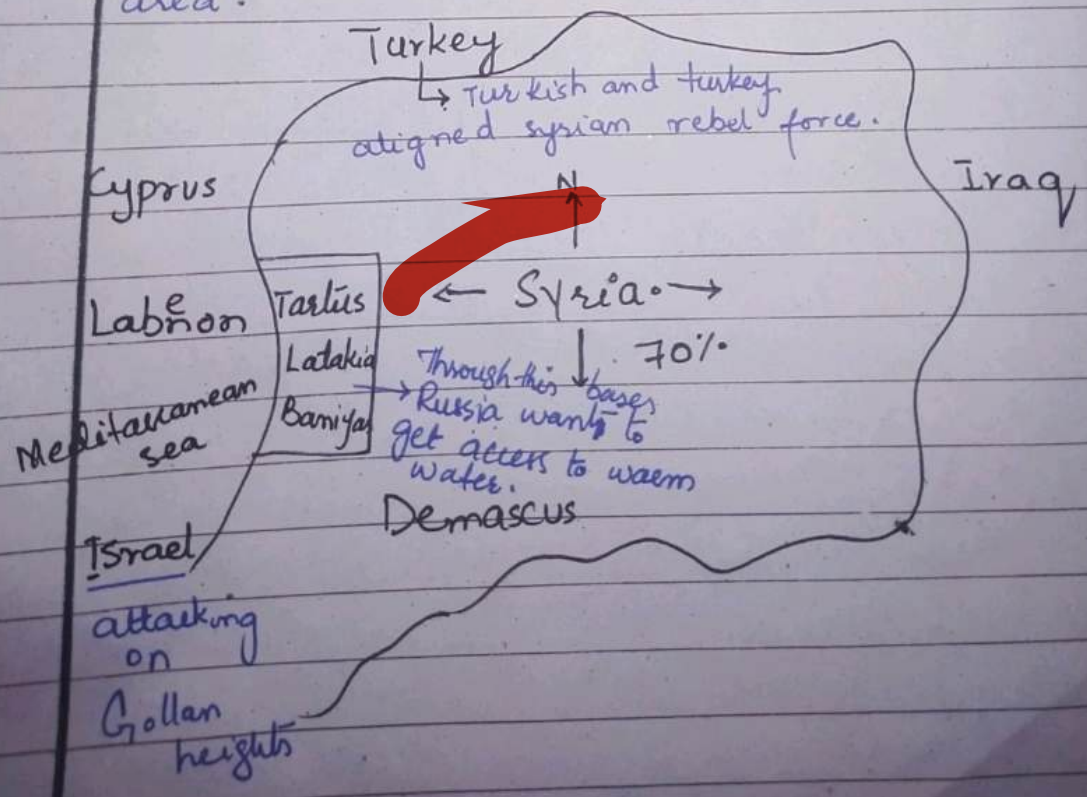 area.
Turkey
↳ Turkish and turkey
aligned syrian rebel force.
Cyprus
Iraq
N
Labenon
Tartus
← Syria. →
Latakia
70%
Mediteranean
sea
Baniyas
Through this bases
Russia wants to
get access to warm
water.
Demascus
Israel
attacking
on
Gollan
heights